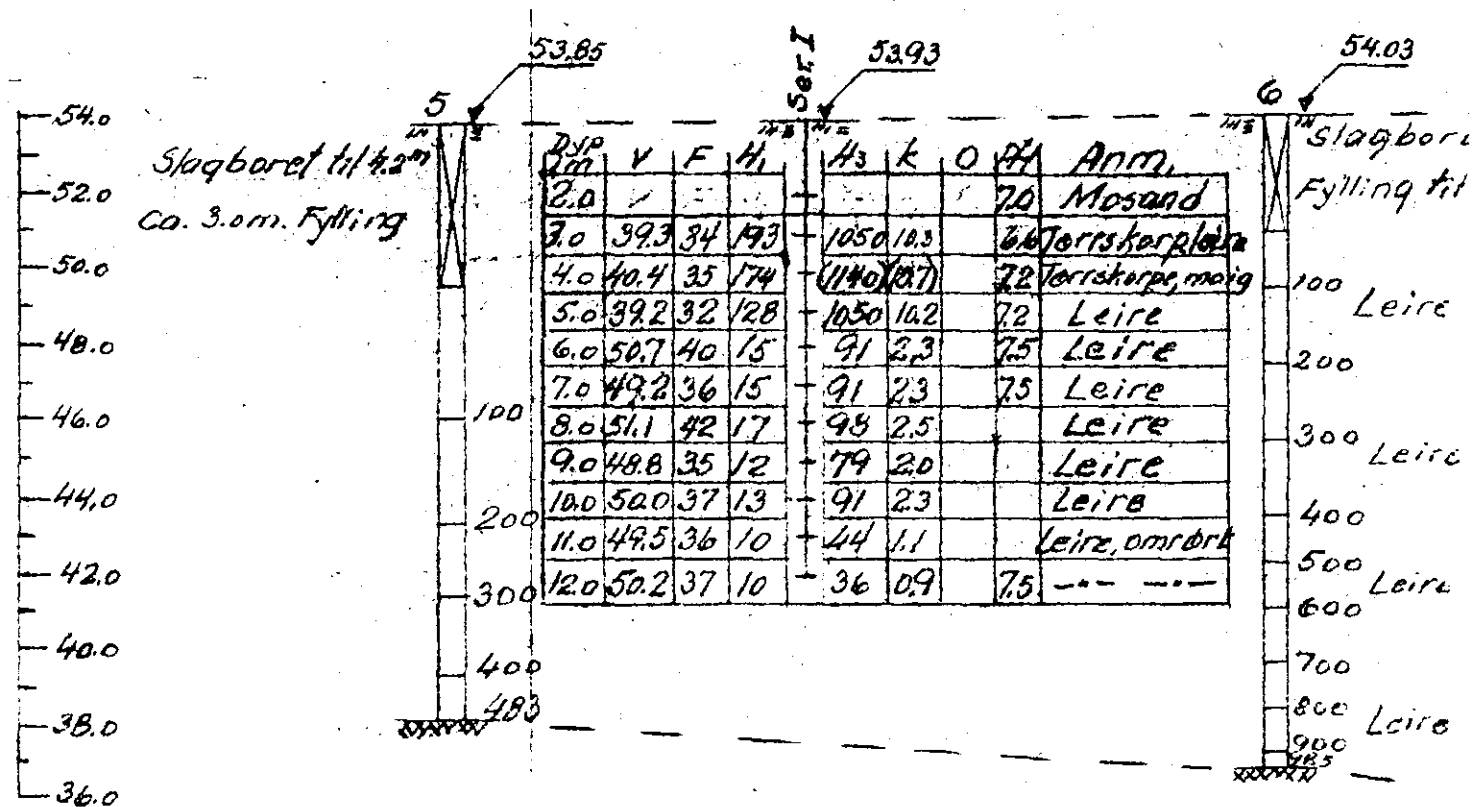 53.85
Ser. I
53.93
54.03
54.0
52.0
50.0
48.0
46.0
44.0
42.0
40.0
38.0
36.0
5
Slagboret til 4.2 m
ca. 3.0m. Fylling
100
200
300
400
483
Dyp i m V F H1 H3 k O PH Anm.
2.0 - - - - - 7.0 Mosand
3.0 39.3 34 193 1050 10.3 6.6 Tørrskorpleire
4.0 40.4 35 174 (1140) (10.7) 7.2 Tørrskorpe, moig
5.0 39.2 32 128 1050 10.2 7.2 Leire
6.0 50.7 40 15 91 2.3 7.5 Leire
7.0 49.2 36 15 91 2.3 7.5 Leire
8.0 51.1 42 17 98 2.5 Leire
9.0 48.8 35 12 79 2.0 Leire
10.0 50.0 37 13 91 2.3 Leire
11.0 49.5 36 10 44 1.1 Leire, omrørt
12.0 50.2 37 10 36 0.9 7.5 -"- -"-
6
Slagbore
Fylling til
100 Leire
200
300 Leire
400
500 Leire
600
700
800 Leire
900